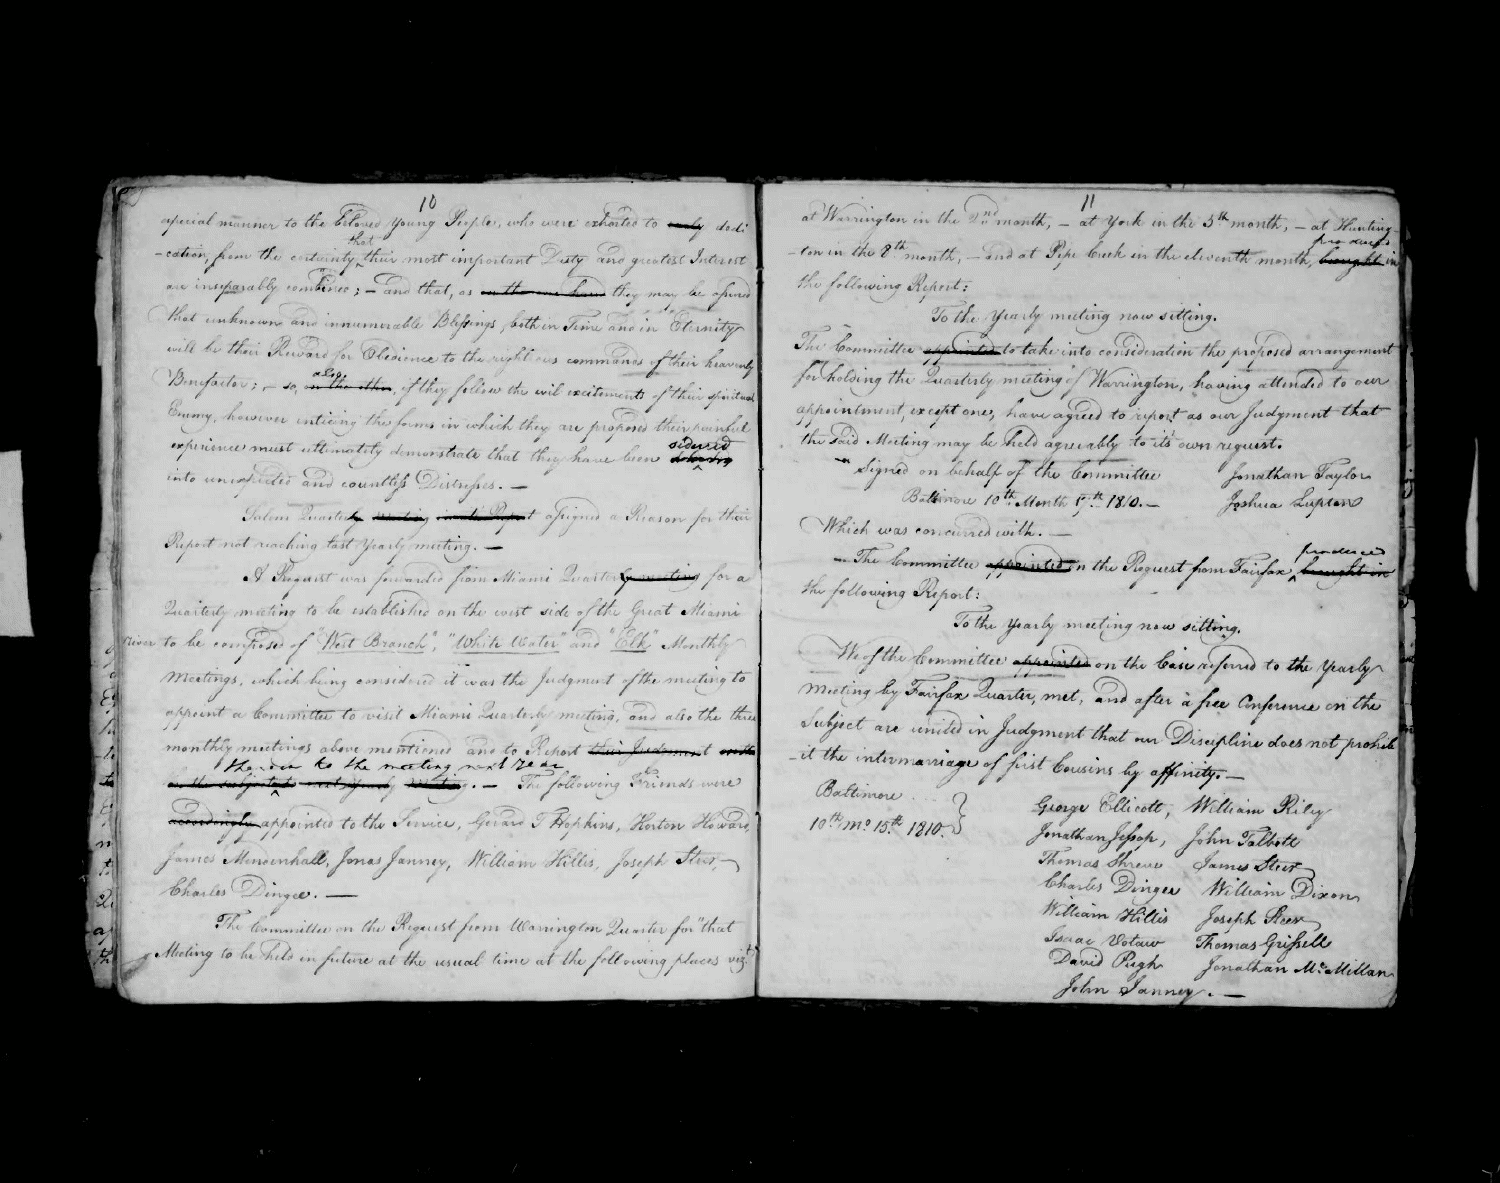 10
especial manner to the beloved Young People, who were exhorted to early dedi
-cation, from the certainty that their most important Duty and greatest Interest
are inseparably combined; – and that, as on the one hand they may be assured
that unknown and innumerable Blessings, both in Time and in Eternity
will be their Reward for Obedience to the righteous commands of their heavenly
Benefactor; – so, also on the other, if they follow the evil excitements of their spiritual
Enemy, however enticing the forms in which they are proposed their painful
experience must ultimately demonstrate that they have been seduced
into unexpected and countless Distresses. —
Salem Quarterly meeting in their Report assigned a Reason for their
Report not reaching last Yearly meeting. —
A Request was forwarded from Miami Quarterly meeting for a
Quarterly meeting to be established on the west side of the Great Miami
river to be composed of "West Branch", "White Water" and "Elk" Monthly
Meetings, which being considered it was the Judgment of the meeting to
appoint a Committee to visit Miami Quarterly meeting, and also the three
monthly meetings above mentioned and to Report their Judgment
thereon to the meeting next year
on the subject to next yearly meeting. — The following Friends were
accordingly appointed to the Service, Gerard T Hopkins, Horton Howard,
James Mendenhall, Jonas Janney, William Hillis, Joseph Steer,
Charles Dingee. —
The Committee on the Request from Warrington Quarter for "that
Meeting to be held in future at the usual time at the following places viz.
11
at Warrington in the 2nd month, – at York in the 5th month, – at Hunting-
-ton in the 8th month, – and at Pipe Creek in the eleventh month, brought in produced
the following Report:
To the Yearly meeting now sitting.
The Committee appointed to take into consideration the proposed arrangement
for holding the Quarterly meeting of Warrington, having attended to our
appointment, except one, have agreed to report as our Judgment that
the said Meeting may be held agreeably to its own request.
Signed on behalf of the Committee Jonathan Taylor
Baltimore 10th Month 15th 1810. — Joshua Lupton
Which was concurred with. —
– The Committee appointed on the Request from Fairfax produced brought in
the following Report:
To the Yearly meeting now sitting.
We of the Committee appointed on the Case referred to the Yearly
Meeting by Fairfax Quarter, met, and after a free Conference on the
Subject are united in Judgment that our Discipline does not prohib
-it the intermarriage of first Cousins by affinity. —
Baltimore
10th mo. 15th 1810.
George Ellicott, William Riley
Jonathan Jessop, John Talbott
Thomas Shreve James Steer
Charles Dingee William Dixon
William Hillis Joseph Steer
Isaac Votaw Thomas Grissell
David Pugh Jonathan McMillan
John Janney. —